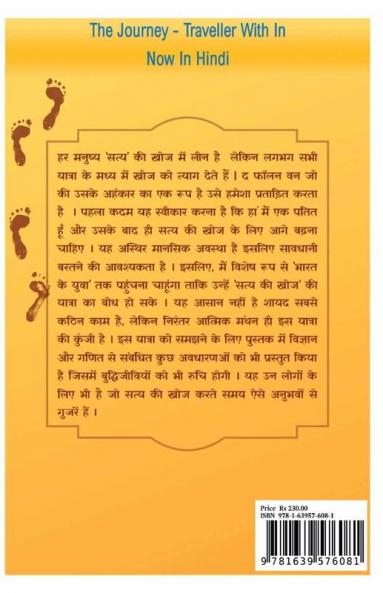 The Journey - Traveller With In
Now In Hindi
हर मनुष्य 'सत्य' की खोज में लीन है लेकिन लगभग सभी
यात्रा के मध्य में खोज को त्याग देते हैं | द फॉलन वन जो
की उसके अहंकार का एक रूप है उसे हमेशा प्रताड़ित करता
है । पहला कदम यह स्वीकार करना है कि हां में एक पतित
हूँ और उसके बाद ही सत्य की खोज के लिए आगे बढ़ना
चाहिए । यह अस्थिर मानसिक अवस्था है इसलिए सावधानी
बरतने की आवश्यकता है । इसलिए, में विशेष रूप से 'भारत
के युवा' तक पहुंचना चाहूंगा ताकि उन्हें 'सत्य की खोज' की
यात्रा का बोध हो सके । यह आसान नहीं है शायद सबसे
कठिन काम है, लेकिन निरंतर आत्मिक मंथन ही इस यात्रा
की कुंजी है । इस यात्रा को समझने के लिए पुस्तक में विज्ञान
और गणित से संबंधित कुछ अवधारणाओं को भी प्रस्तुत किया
है जिसमें बुद्धिजीवियों को भी रुचि होगी । यह उन लोगों के
लिए भी है जो सत्य की खोज करते समय ऐसे अनुभवों से
गुजरें हैं ।
Price Rs 230.00
ISBN 978-1-63957-608-1
9 781639 576081